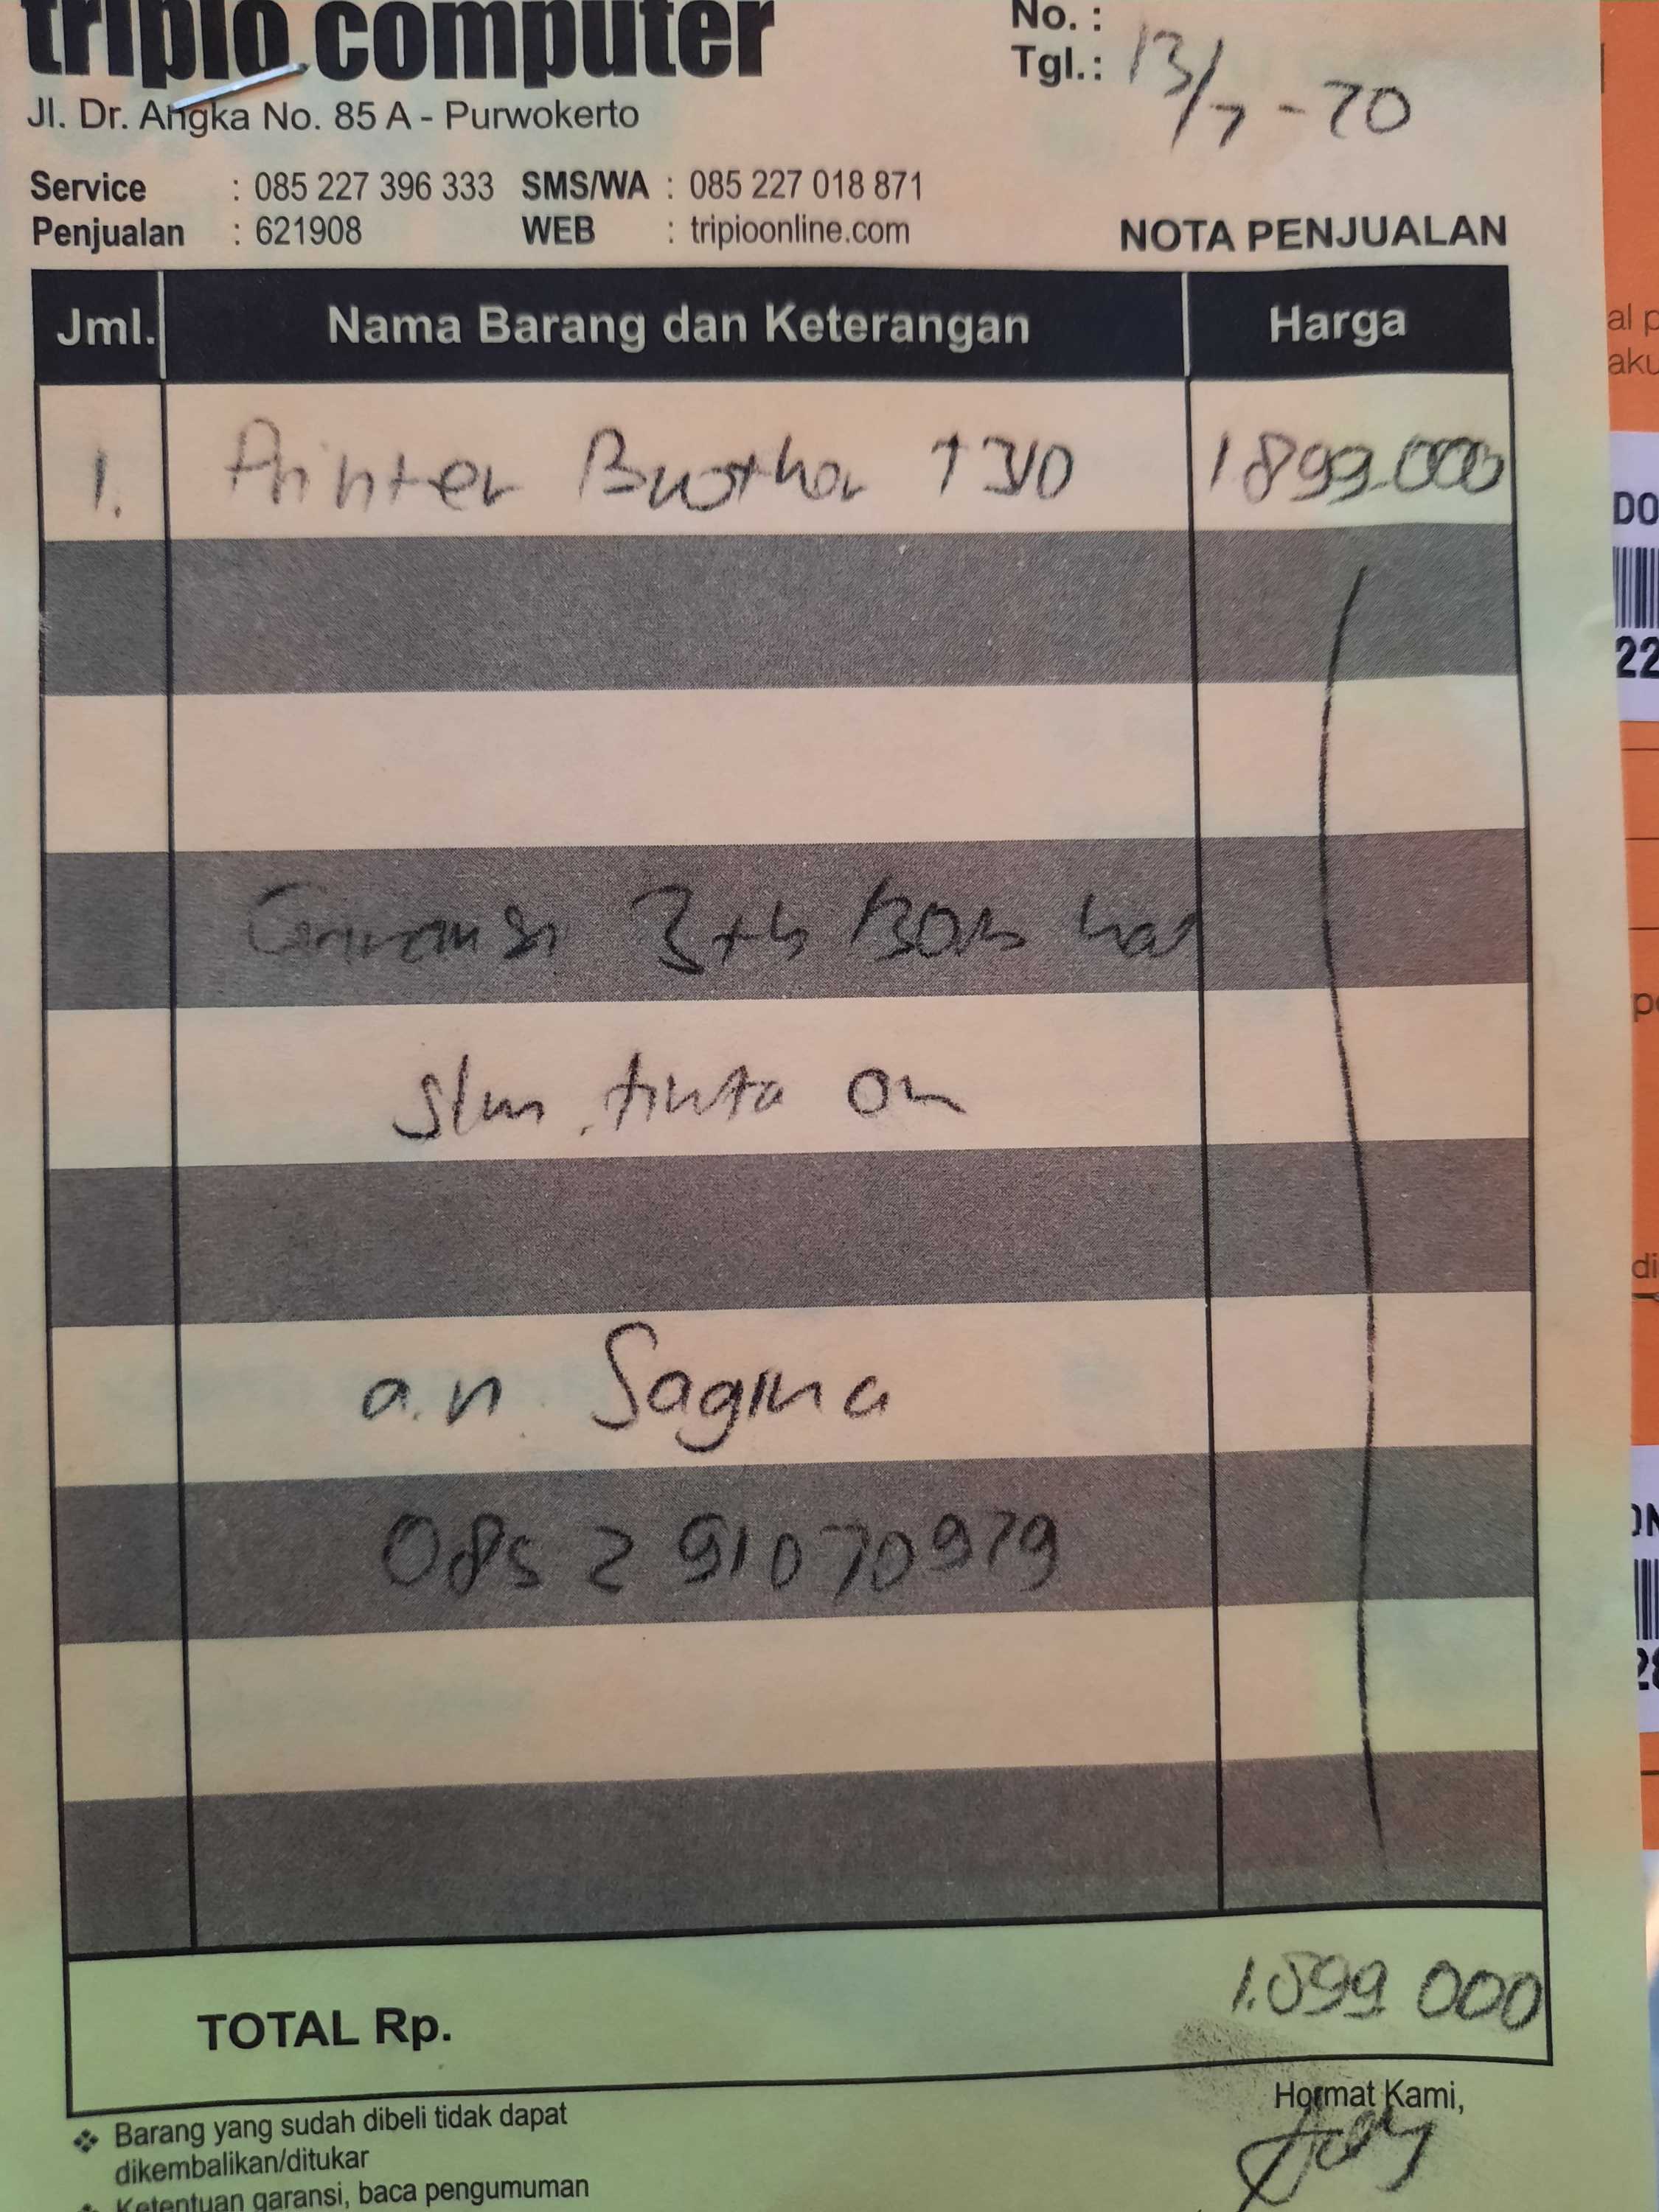 tripio computer
No. :
Tgl.: 13/7-20
Jl. Dr. Angka No. 85 A - Purwokerto
Service : 085 227 396 333 SMS/WA : 085 227 018 871
Penjualan : 621908 WEB : tripioonline.com
NOTA PENJUALAN
Jml. Nama Barang dan Keterangan Harga
1. Printer Brother T310 1.899.000
Garansi 3 th
tinta
a.n. Sagina
085 291070979
TOTAL Rp. 1.899 000
Hormat Kami,
❖ Barang yang sudah dibeli tidak dapat
dikembalikan/ditukar
❖ Ketentuan garansi, baca pengumuman
al p
aku
DO
22
di
28